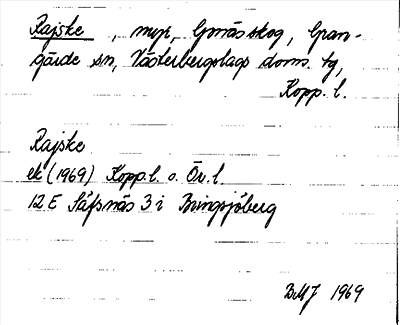 Rajske, myr, Gonäs skog, Gran-
gärde sn, Västerbergslags doms. tg,
Kopp. l.
Rajske
ek (1969) Kopp. l. o. Ör. l
12 E Säfsnäs 3 i Bringsjöberg
BMJ 1969